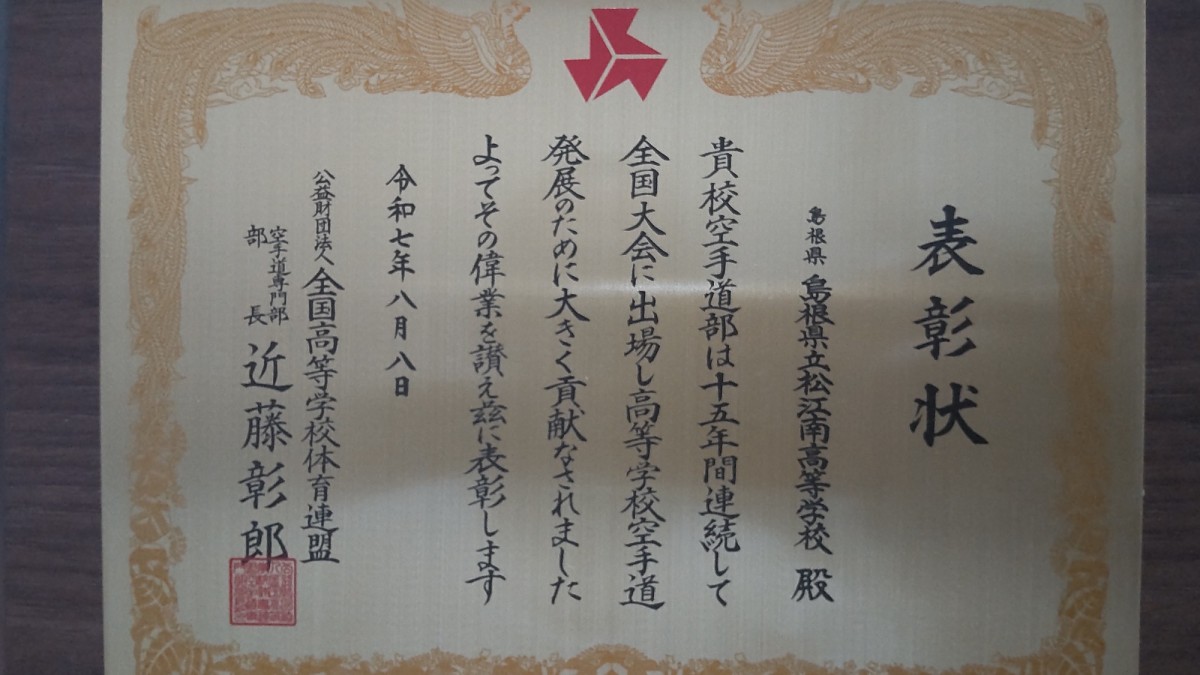 表彰状
島根県 島根県立松江南高等学校 殿
貴校空手道部は十五年間連続して
全国大会に出場し高等学校空手道
発展のために大きく貢献なされました
よってその偉業を讃え茲に表彰します
令和七年八月八日
公益財団法人 全国高等学校体育連盟
空手道専門部
部長 近藤彰郎